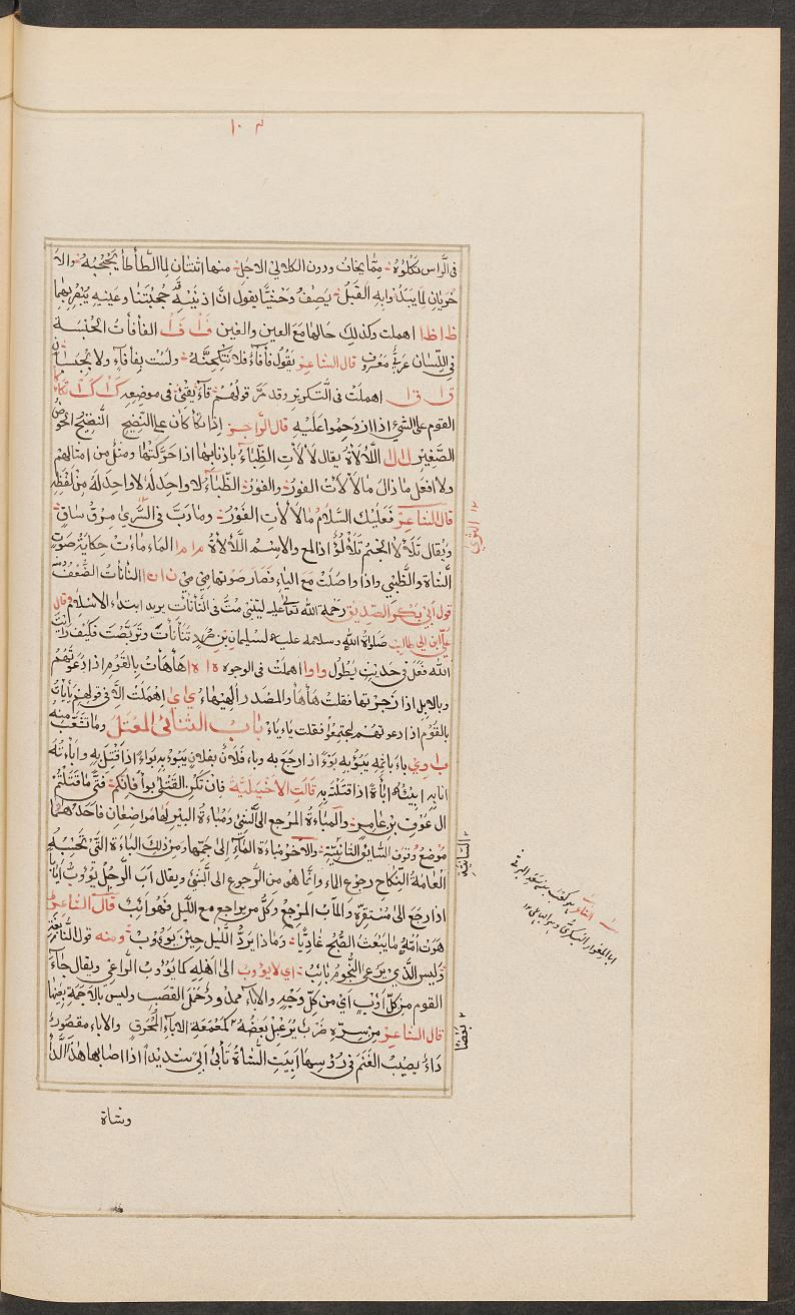 في الراس تكلؤه مما يخاف ودون الكلائي الاجل منها اثنتان لما الطأطأ يججبه والا
خريان لما يبدؤا به القبل يصف وحشيا يقول ان اذنيه حجبتنا وعينيه يبصر بهما
ظا ظا اهملت وكذلك حالهما مع العين والغين فا فا الفأفأت الحبسة
في اللسان عربية معروف قال الشاعر يقول فأفأة فلا تنكحنه ولست بفأفاء ولا بجبسان
قا قا اهملت في التكرير وقد مر قولهم قاء يقيئ في موضعه كا كا تكأكأ
القوم على الشيء اذا ازدحموا عليه قال الراجز اذا تكأكأن على النضيج النضيح الحوض
الصغير لا لا اللألأة يقال لألأت الظباء باذنابها اذا حركتها ومثل من امثالهم
ولا افعل ما ذاك ما لألأت الفور والفور الظباء لا واحد له لا واحد له من لفظه
قال الشاعر فعليك السلام ما لألأت الفور وما دب في الثرى عرق ساق
ويقال تلألأ النجم تلألؤ اذا لمع والاسم اللألأة ما ما الماء ماءت حكاية صوت
الشاة والظبي واذا واصلت مع الياء فصار صوتها مئ مئ نا نا النأنأت الضعف ومنه
قول ابي بكر الصديق رحمة الله تعالى عليه ليتني مت في النأنأت يريد ابتداء الاسلام وقال
علي ابن ابي طالب صلوة الله وسلامه عليه لسليمان بن صرد تنأنأت وتربصت فكيف رأيت
الله فعل في حديث يطول وا وا اهملت في الوجوه ها ها هأهأت بالقوم اذا دعوتهم
وبالابل اذا زجرتها فقلت هأهأ والمصدر الهيهاء يا يا اهملت الا في قولهم يأيأت
بالقوم اذا دعوتهم لجتمعوا فقلت يا ياء باب الثنائي المعتل وما تشعب منه
ب ا وي باء باثمه يبوء به بوءة اذا رجع به وباء فلان بفلان يبوء به بواء اذا قتل به وابأته
انا به ابيئه ابأة اذا قتلته به قالت الاخيلية فان تكن القتلى بواء فانكم فتى ما قتلتم
ال عوف بن عامر والمباءة المرجع الى الشيئ ومباءة البئر لها مواضعان فاحدهما
موضع وقوف السابق السانية والاخر مباءة الماء الى جمتها ومن ذلك الباءة التي تحسبه
العامة النكاح رجوع الماء وانما هو من الرجوع الى الشيئ ويقال آب الرجل يؤوب ايابا
اذا رجع الى مستقره والمآب المرجع وكل من يراجع مع الليل فهو ائب قال الشاعر
هوت امه ما يبعث الصبح غاديا وما ذا يرد الليل حين يؤوب ومنه قول النابغة
وليس الذي يرعى النجوم بائب اي لا يؤوب الى اهله كما يؤوب الراعي ويقال جاء
القوم من كل اوب اي من كل وجه والاباء ممدود حمل القصب وليس بالاجمة بعينها
قال الشاعر من سره ضرب يرعبل بعضه كمعمعة الاباء المحرق والاباء مقصور
داء يصيب الغنم في رؤسها ابيت الشاة تأبى ابى شديدا اذا اصابها هذا الدا
وشاة
الثرى
السانية
بعضا